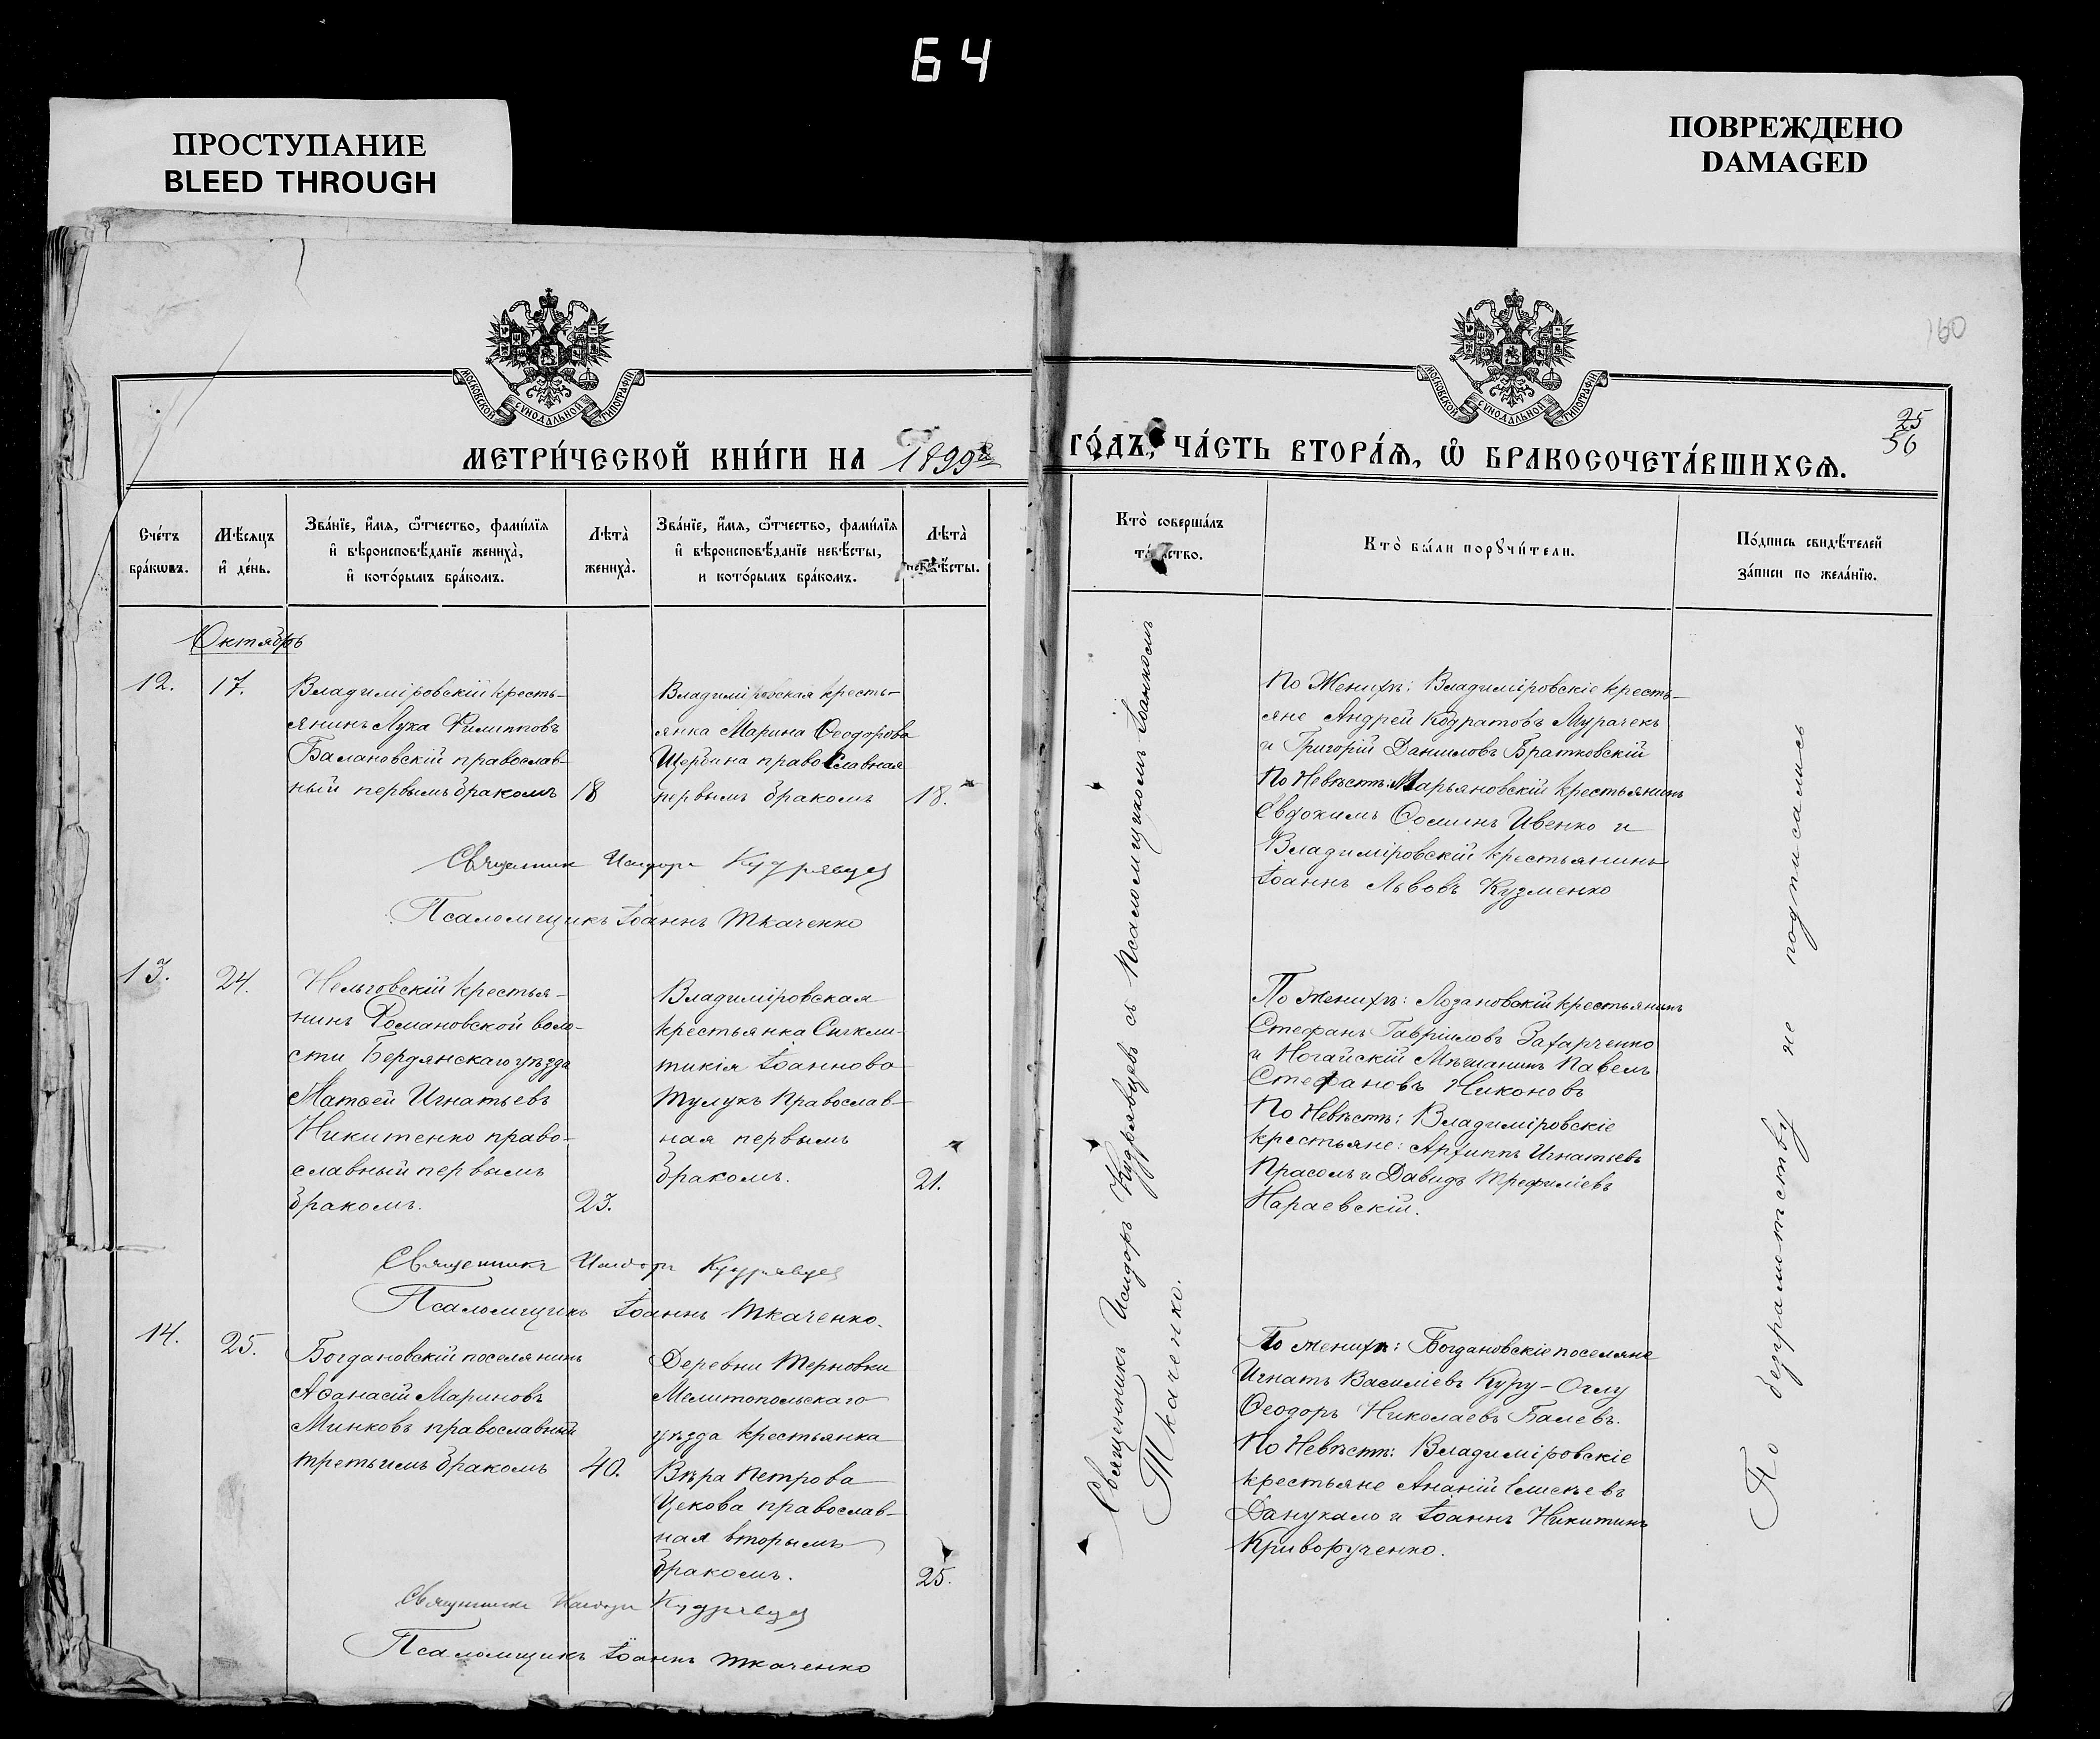 64
ПРОСТУПАНИЕ
BLEED THROUGH
ПОВРЕЖДЕНО
DAMAGED
160
МОСКОВСКОЙ СѴНОДАЛЬНОЙ ТИПОГРАФІИ
МОСКОВСКОЙ СѴНОДАЛЬНОЙ ТИПОГРАФІИ
25
56
МЕТРИ́ЧЕСКОЙ КНИ́ГИ НА 1899й
ГО́ДЪ, ЧА́СТЬ ВТОРА́Ѧ, Ѽ БРАКОСОЧЕТА́ВШИХСѦ.
Сче́тъ
бра́кѡвъ.
Мѣ́сяцъ
и҆ де́нь.
Зва́нїе, и҆́мѧ, ѻ҆́тчество, фами́лїѧ
и҆ вѣроисповѣ́данїе жениха̀,
и҆ кото́рымъ бра́комъ.
Лѣта̀
жениха̀.
Зва́нїе, и҆́мѧ, ѻ҆́тчество, фами́лїѧ
и҆ вѣроисповѣ́данїе невѣ́сты,
и кото́рымъ бра́комъ.
Лѣта̀
невѣ́сты.
Кто̀ соверша́лъ
та́инство.
Кто̀ бы́ли порꙋчи́тели.
По́дпись свидѣ́телей
за́писи по жела́нїю.
Октябрь
12.
17.
Владиміровскій кресть-
янинъ Лука Филипповъ
Балановскій православ-
ный первымъ бракомъ
18
Владиміровская кресть-
янка Марина Ѳеодорова
Щербина православная
первымъ бракомъ
18.
Священник Исидоръ Кудрявцев
Псаломщикъ Іоаннъ Ткаченко
13.
24.
Нельговскій крестья-
нинъ Романовской воло-
сти Бердянскаго уѣзда
Матѳей Игнатьевъ
Никитенко право-
славный первымъ
бракомъ.
23.
Владиміровская
крестьянка Сигкли-
тикія Іоаннова
Тулукъ Православ-
ная первымъ
бракомъ.
21.
Священникъ Исидоръ Кудрявцев
Псаломщикъ Іоаннъ Ткаченко.
14.
25.
Богдановскій поселянинъ
Аѳанасій Мариновъ
Минковъ православный
третьимъ бракомъ
40.
Деревни Терновки
Мелитопольскаго
уѣзда крестьянка
Вѣра Петрова
Цекова православ-
ная вторымъ
бракомъ.
25.
Священникъ Исидоръ Кудрявцев
Псаломщикъ Іоаннъ Ткаченко
Священникъ Исидоръ Кудрявцевъ съ Псаломщикомъ Іоанномъ
Ткаченко.
По Женихѣ: Владиміровскіе кресть-
яне Андрей Кодратовъ Мурачекъ
и Григорій Даниловъ Братковскій
По Невѣстѣ: Марьяновскій крестьянинъ
Евдокимъ Ѳоминъ Ивенко и
Владиміровскій крестьянинъ
Іоаннъ Львовъ Кузменко
По женихѣ: Лозановскій крестьянинъ
Стефанъ Гавріиловъ Захарченко
и Ногайскій Мѣщанинъ Павелъ
Стефановъ Никоновъ
По Невѣстѣ: Владиміровскіе
крестьяне: Архиппъ Игнатьевъ
Прасолъ и Давидъ Трефиліевъ
Нараевскій.
По женихѣ: Богдановскіе поселяне
Игнатъ Василіевъ Куру-Оглу
Ѳеодоръ Николаевъ Балевъ.
По Невѣстѣ: Владиміровскіе
крестьяне Ананій Елисѣевъ
Данукало и Іоаннъ Никитинъ
Криворученко.
По безграмотству не подписались